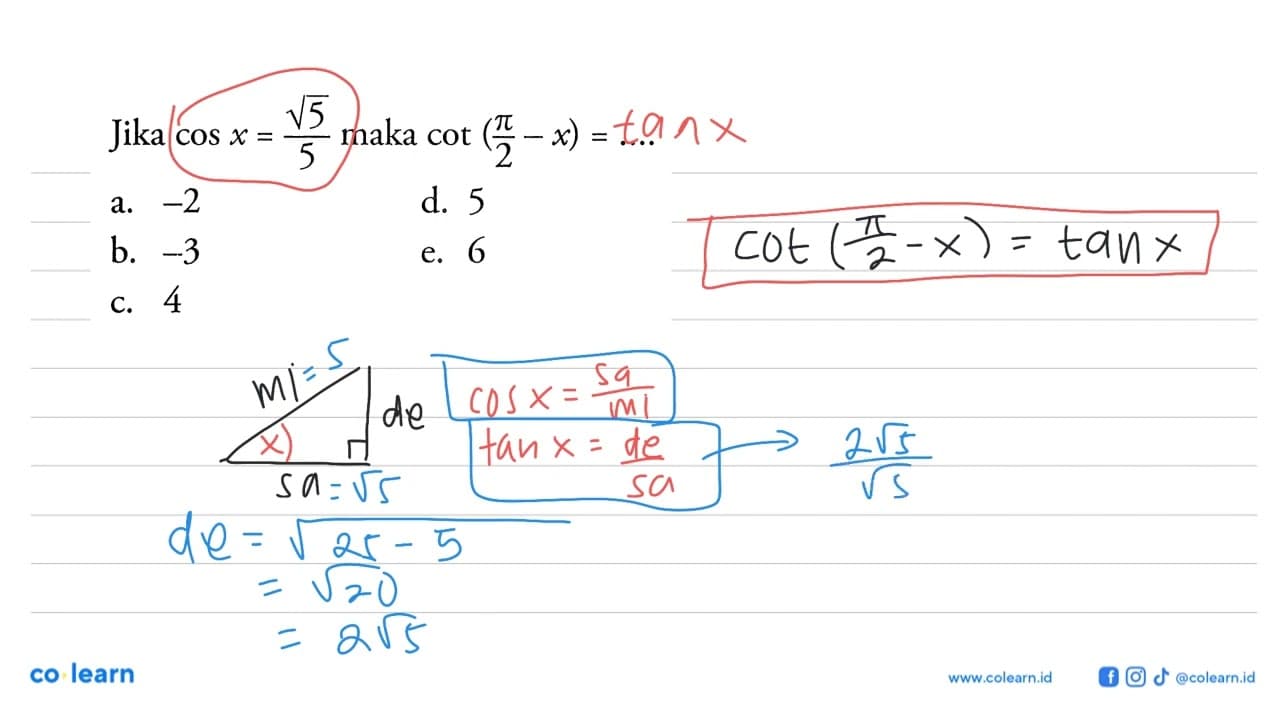 Jika cos x = √5/5 maka cot (π/2 – x) = .... tan x
a. –2
d. 5
b. –3
e. 6
c. 4
cot (π/2 - x) = tan x
mi = 5
de
x)
sa = √5
cos x = sa/mi
tan x = de/sa → 2√5/√5
de = √25 - 5
= √20
= 2√5
co learn
www.colearn.id
@colearn.id